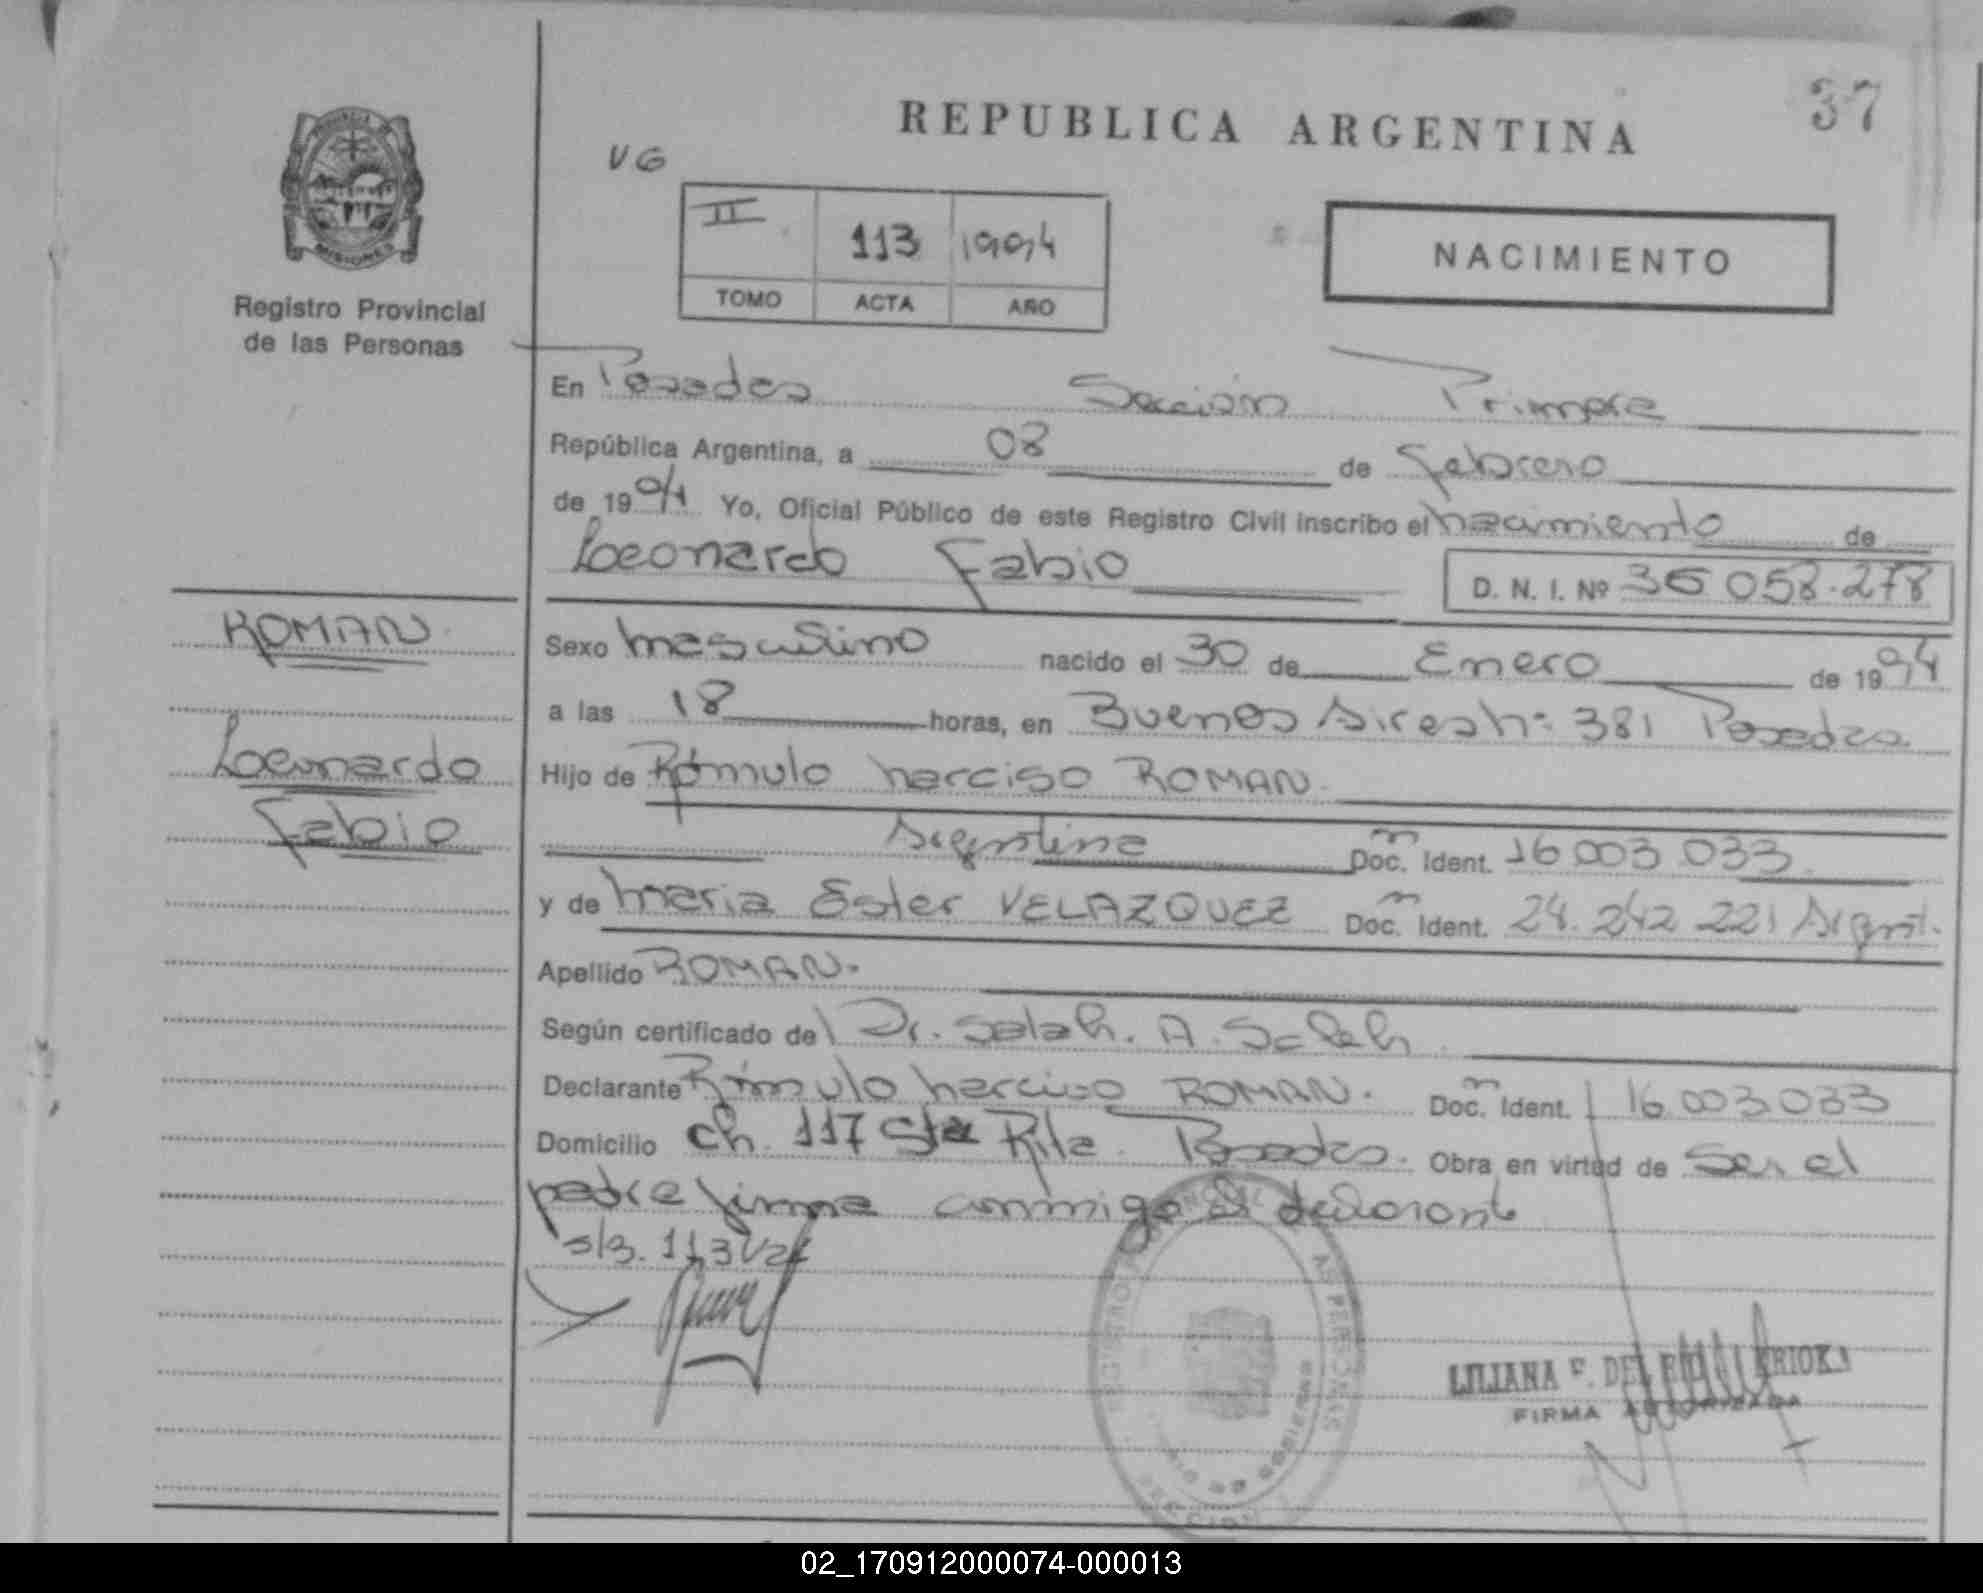 37
REPUBLICA ARGENTINA
VG
II 113 1994
TOMO ACTA AÑO
NACIMIENTO
MISIONES
Registro Provincial
de las Personas
En Posadas Sección Primera
República Argentina, a 08 de Febrero
de 1994 Yo, Oficial Público de este Registro Civil inscribo el nacimiento de
Leonardo Fabio D. N. I. Nº 36 058.278
ROMAN.
Leonardo
Fabio
Sexo masculino nacido el 30 de Enero de 1994
a las 18 horas, en Buenos Aires nº 381 Posadas
Hijo de Rómulo narciso ROMAN.
Argentina Doc. Ident. 16 003 033.
y de maria Ester VELAZQUEZ Doc. Ident. 24.242 221 Argent.
Apellido ROMAN.
Según certificado del Dr. Salah. A. Saleh
Declarante Rómulo narciso ROMAN. Doc. Ident. 16.003.033
Domicilio Ch. 117 Sta Rita. Posadas. Obra en virtud de Ser el
padre firma conmigo el declarante
s/3. 113
LILIANA F. DE
FIRMA AUTORIZADA
02_170912000074-000013